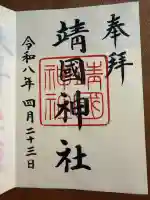 奉拝
靖國神社
令和八年 四月二十三日